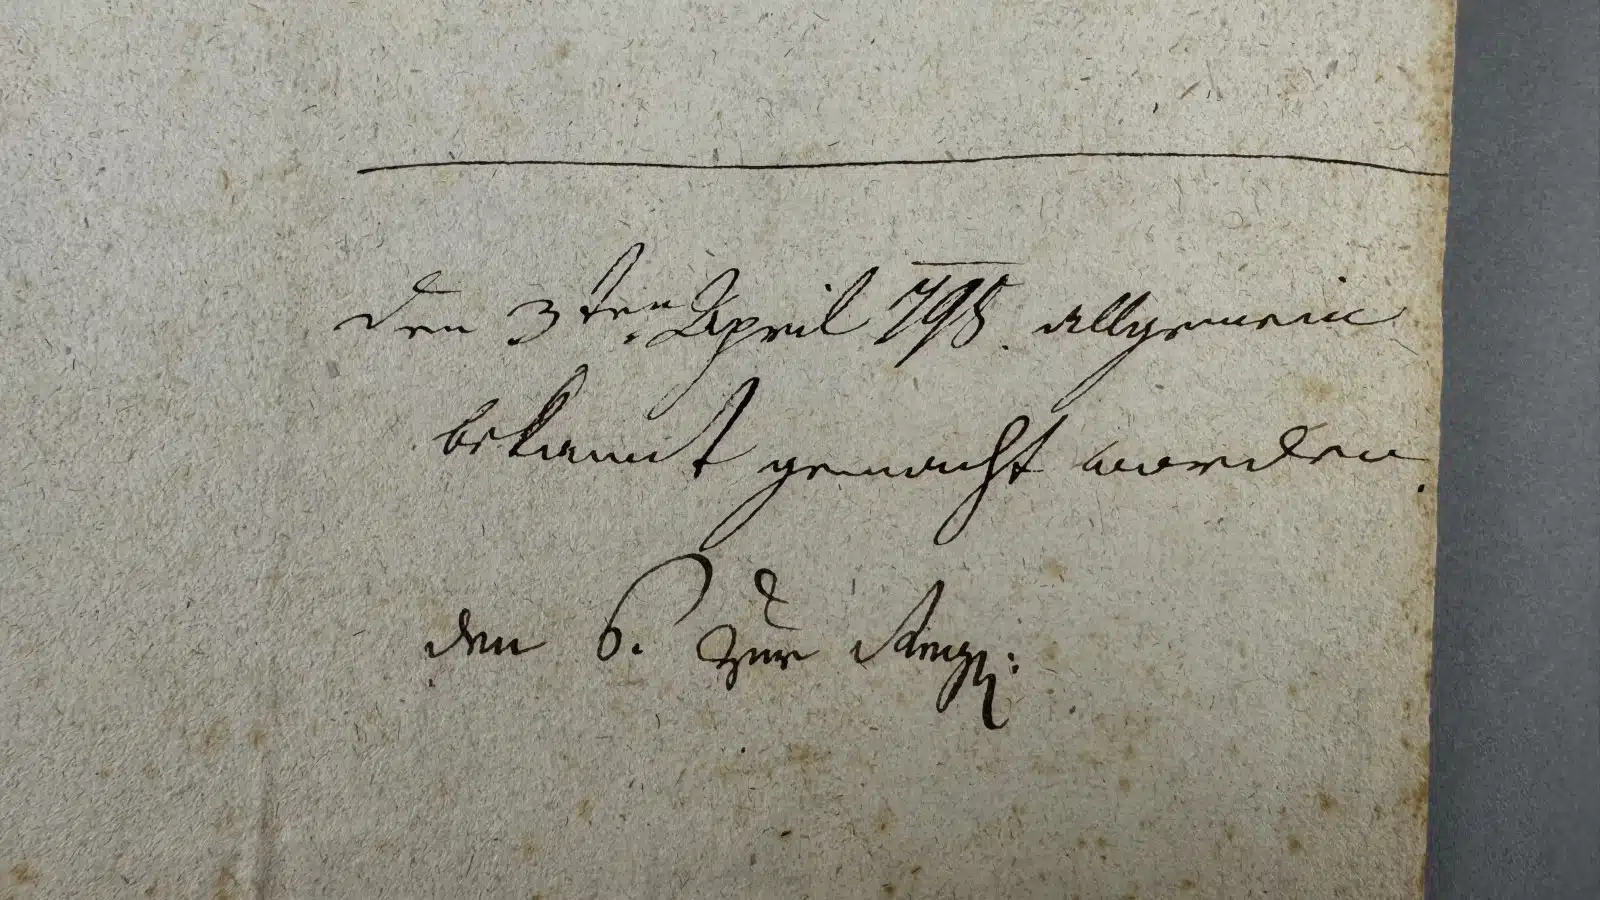 den 3ten April 798. allgemein
bekannt gemacht worden.
den 6. zur Kanzl: